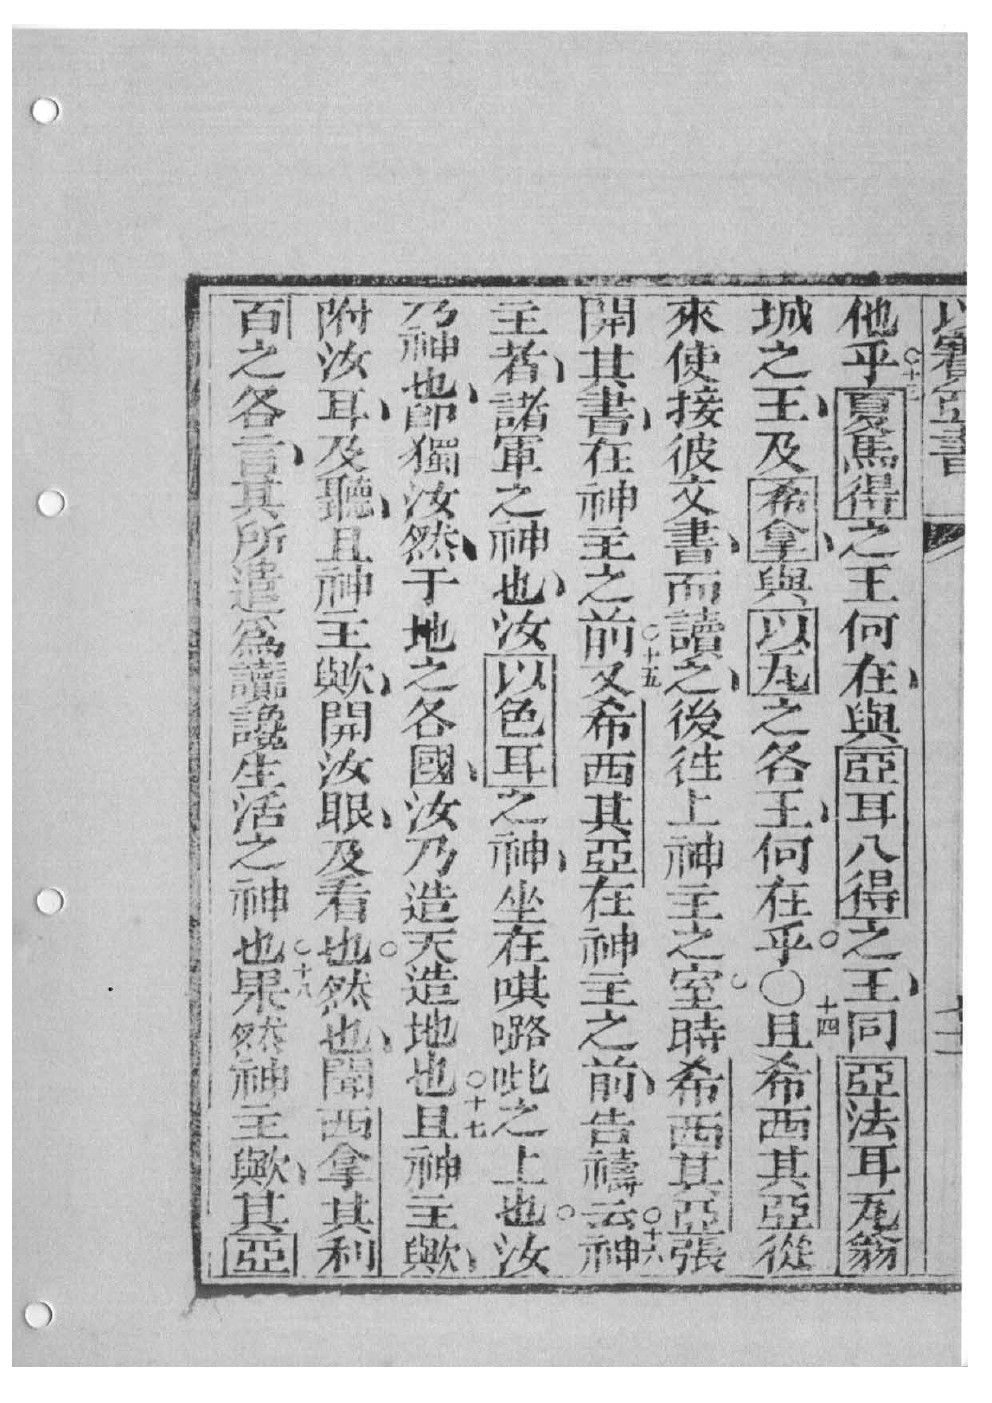 以賽亞書
他乎○十三夏馬得之王何在與亞耳八得之王同亞法耳瓦翁
城之王及希拿與以瓦之各王何在乎○十四且希西其亞從
來使接彼文書而讀之後徃上神主之室時希西其亞張
開其書在神主之前○十五又希西其亞在神主之前告禱云○十六神
主者諸軍之神也汝以色耳之神坐在唭𡀔吡之上也汝
乃神也卽獨汝然于地之各國汝乃造天造地也○十七且神主歟
附汝耳及聽且神主歟開汝眼及看也然也聞西拿其利
百之各言其所遣爲讀讒生活之神也○十八果然神主歟其亞